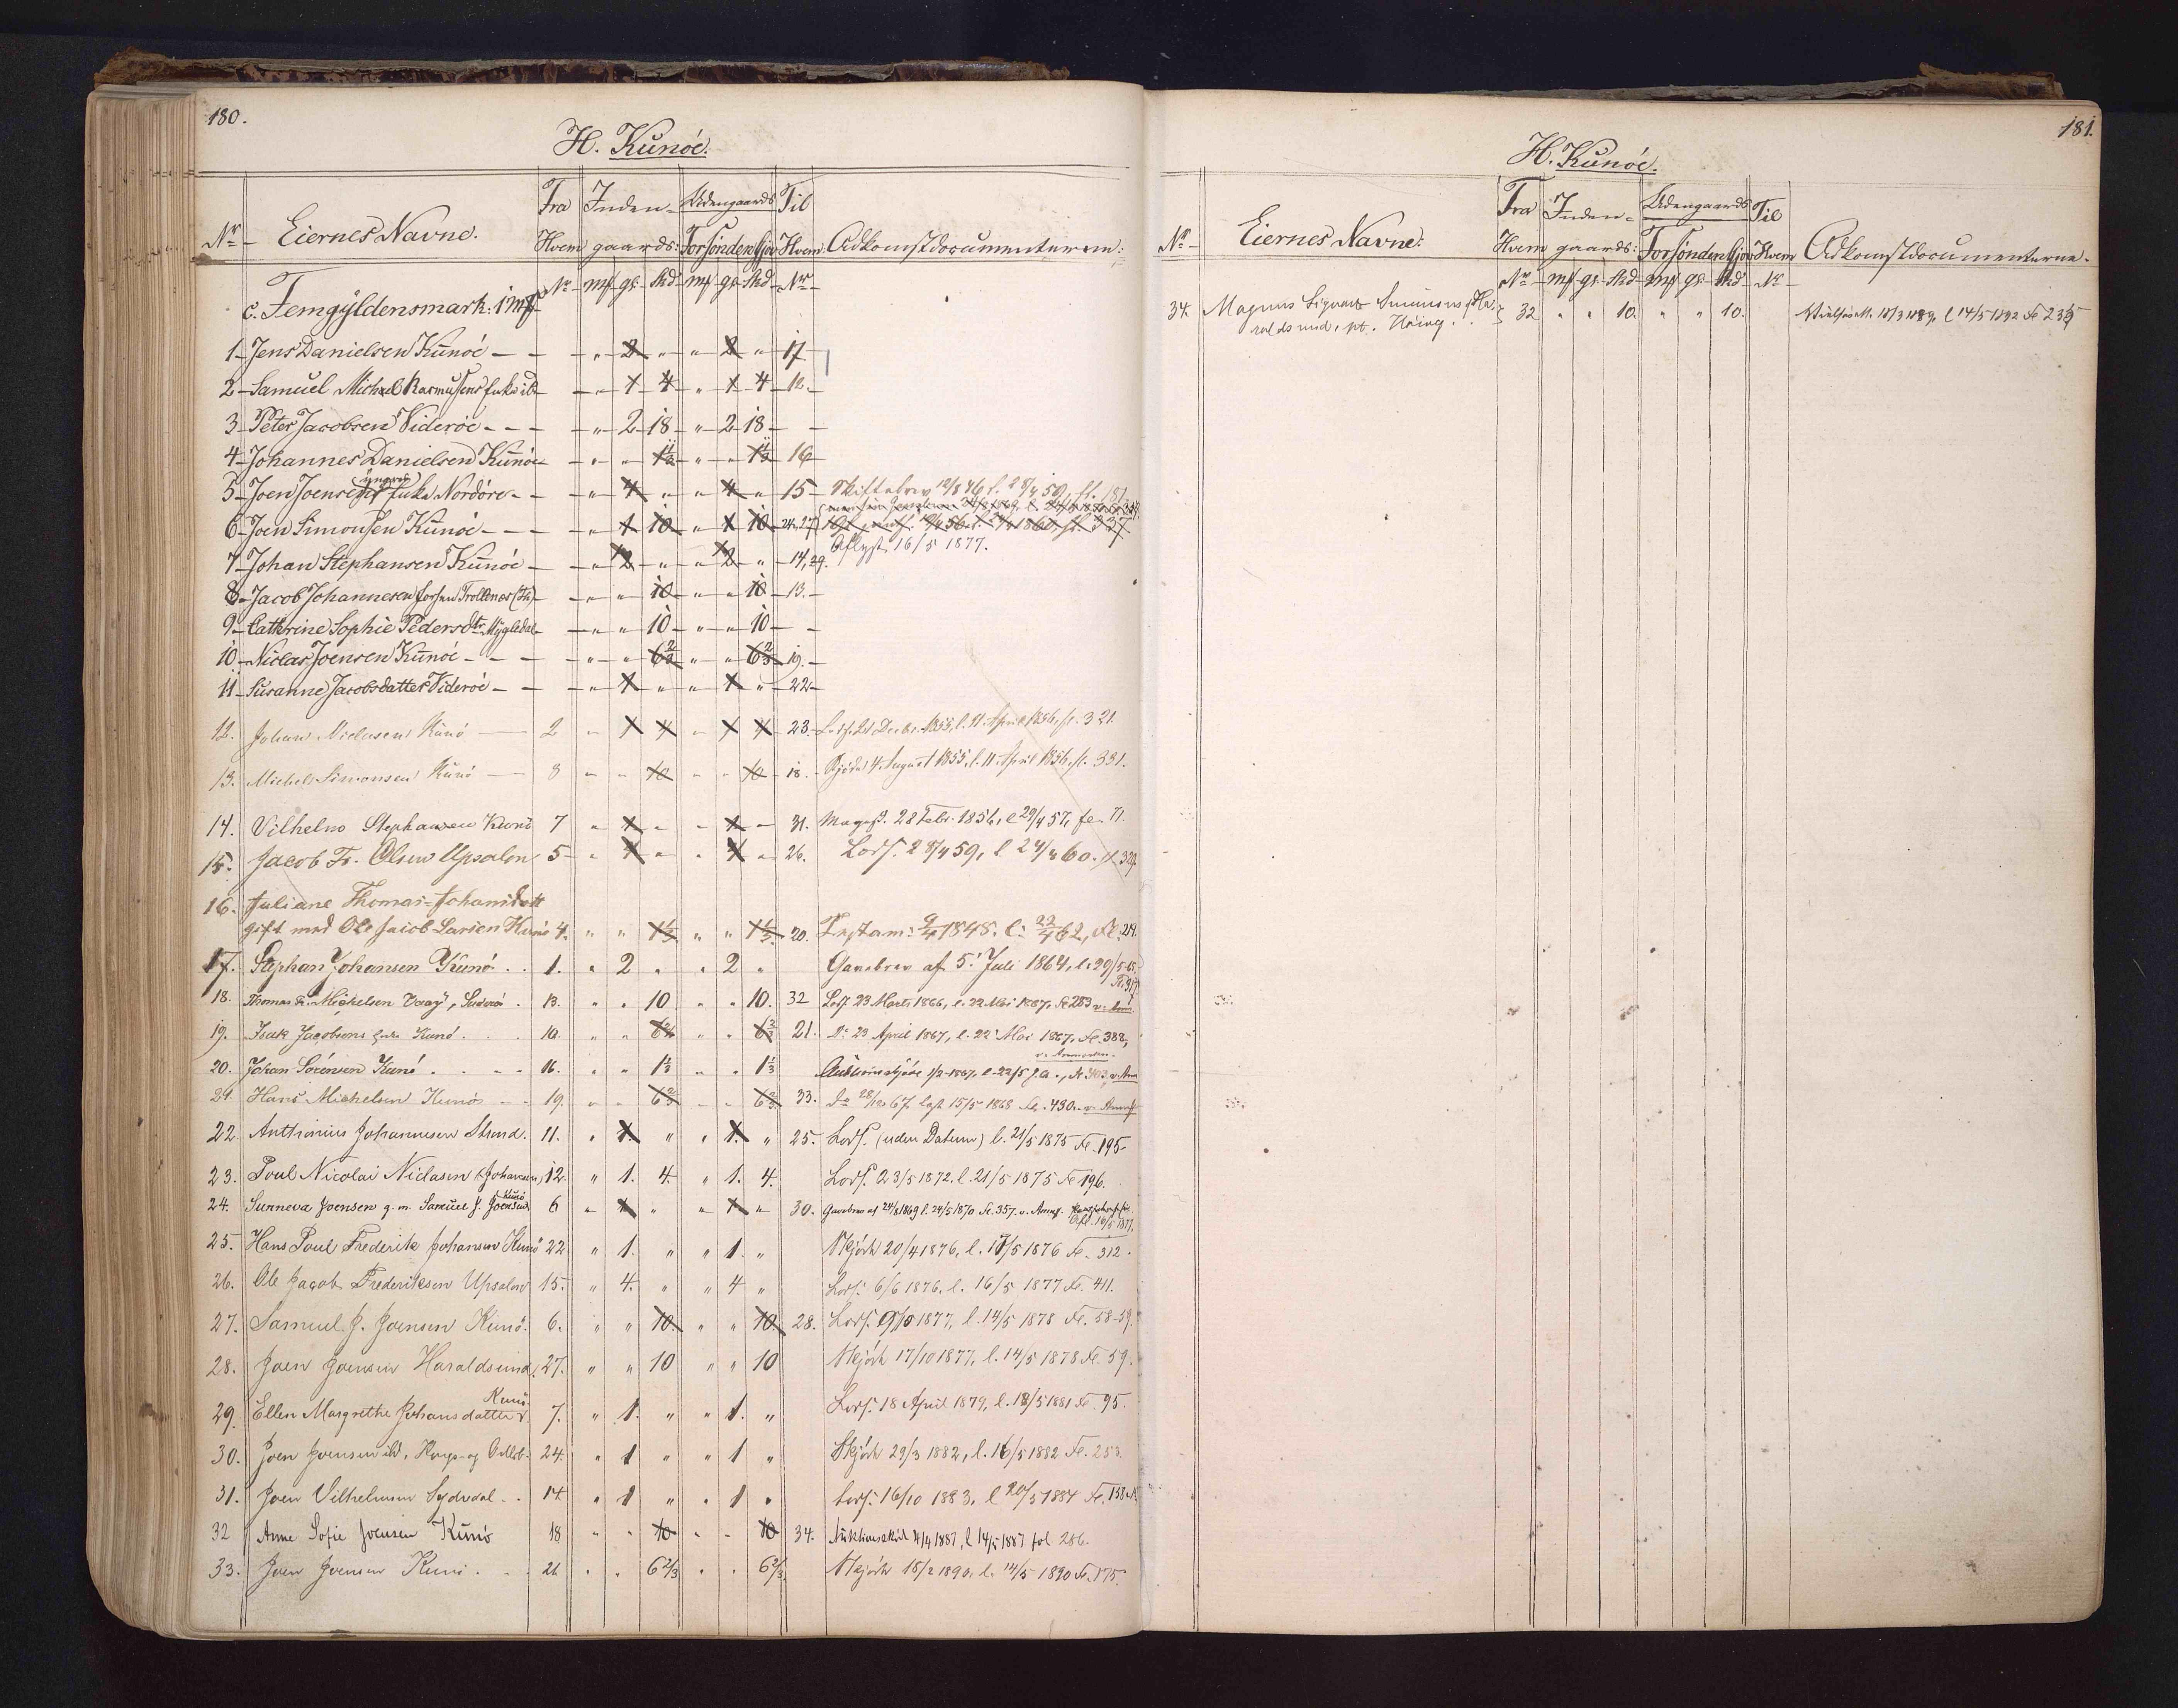 180.
H. Kunöe.
Nr Eiernes Navne. Fra Hvem Inden-gaards: Udengaards Forsönden Gjov Til Hvem Adkomstdocumenterne:
Nr mf gs. skd mf gs. skd Nr
c. Femgyldensmark: 1 mf
1 Jens Danielsen Kunöe " 2 " " 2 " 17
2 Samuel Michael Rasmussens Enke " 1 4 " 1 4 12
3 Peter Jacobsen Videröe " 2 18 " 2 18
4 Johannes Danielsen Kunöe " " 1 1/3 " " 1 1/3 16
5 Joen Joensens Enke Nordöre " 4 " " 4 " 15 Skiftebrev 12/8 46 l. 28/4 59, fl. 181
6 Joen Simonsen Kunöe " 1 10 " 1 10 24.27
Aflyst 16/5 1877.
7 Johan Stephansen Kunöe " 2 " " 2 " 14,29.
8 Jacob Johannesen Trollenæs " " 10 " " 10 13.
9 Cathrine Sophie Pedersdtr Mygledal " " 10 " " 10
10 Niclas Joensen Kunöe " " 6 2/3 " " 6 2/3 19.
11 Susanne Jacobsdatter Videröe " 1 " " 1 " 22
12. Johan Niclasen Kunö 2 " 1 4 " 1 4 23. l. 11. April 1856, fl. 321.
13. Michel Simonsen Kunö 8 " " 10 " " 10 18. Skjöde 4. August 1855, l. 11. April 1856, fl. 331.
14. Vilhelm Stephansen Kunö 7 " 1 " " 1 " 31. Mageß. 28 Febr. 1856, l 29/4 57, fe. 71.
15. Jacob Fr. Olsen Upsalon 5 " 4 " " 4 " 26. Lods. 28/4 59, l 24/4 60. fl. 329.
16. Juliane Thomas-Johansdatt
gift med Ole Jacob Larsen Kunö 4. " " 1 1/3 " " 1 1/3 20. Testam: 9/4 1848. l: 22/4 62, fl. 24.
17. Stephan Johansen Kunö 1. " 2 " " 2 " Gavebrev af 5. Juli 1864, l. 29/5 65.
Fl. 917.
18. Thomas Fr. Michelsen Vaag, Suderö 13. " " 10 " " 10. 32 Lods. 23 Marts 1866, l. 22 Mai 1867, Fe 283
19. Isak Jacobsens Enke Kunö 10. " " 6 2/3 " " 6 2/3 21. Do 23 April 1867, l. 22 Mai 1867. Fe. 388,
20. Johan Sörensen Kunö 16. " " 1 1/3 " " 1 1/3 Auktionsskjöde 1/2 1867, l. 22/5 s.a., Fe 403
21. Hans Michelsen Kunö 19. " " 6 2/3 " " 6 2/3 33. Do 28/12 67. læst 15/5 1868 Fe. 430.
22. Anthonius Johannesen Strond. 11. " 1. " " 1. " 25. Lods. (uden Datum) l. 21/5 1875 Fe. 195.
23. Poul Nicolai Niclasen (Johansen), Kunö 12. " 1. 4. " 1. 4. Lods. 23/5 1872. l. 21/5 1875 Fe 196.
24. Sunneva Joensen g. m. Samuel J. Joensen 6 " 1 " " 1 " 30. Gavebrev af 24/8 1869 l. 24/5 1870 Fe. 357. v. Anm.
Afl. 16/5 1877.
25. Hans Poul Frederik Johansen Kunö 22 " 1. " " 1. " Skjöde 20/4 1876, l. 17/5 1876 Fe. 312.
26. Ole Jacob Frederiksen Upsalon 15. " 4. " " 4 " Lods. 6/6 1876, l. 16/5 1877 Fe. 411.
27. Samuel J. Joensen Kunö. 6. " " 10. " " 10 28. Lods. 9/10 1877, l. 14/5 1878 Fe. 58-59.
28. Joen Joensen Haraldsund, 27. " " 10 " " 10 Skjöde 17/10 1877, l. 14/5 1878 Fe. 59.
29. Ellen Margrethe Johansdatter Kunö 7. " 1. " " 1. " Lods. 18 April 1879, l. 18/5 1881 Fe. 95.
30. Joen Joensen ibd. Kongs- og Odlsb. 24. " 1 " " 1 " Skjöde 29/3 1882, l. 16/5 1882 Fe. 253.
31. Joen Vilhelmsen Sydredal 14. " 1 " " 1 " Lods. 16/10 1883, l 20/5 1884 Fe. 158
32 Anne Sofie Joensen Kunö 18 " " 10 " " 10 34. Auktionssköde 4/4 1887, l 14/5 1887 fol 286.
33. Joen Joensen Kunö 21 " " 6 2/3 " " 6 2/3 Skjöde 18/2 1890, l. 14/5 1890 Fe. 175.
181.
H. Kunöe.
Nr Eiernes Navne: Fra Hvem Inden-gaards: Udengaards Forsönden Gjov Til Hvem Adkomstdocumenterne.
Nr mf gs. skd mf gs. skd Nr
34. Magnus Sigvard Simonsen, Ha-
raldsund, pt. 32 " " 10. " " 10. 18/3 1889, l 14/5 1892 Fe 235